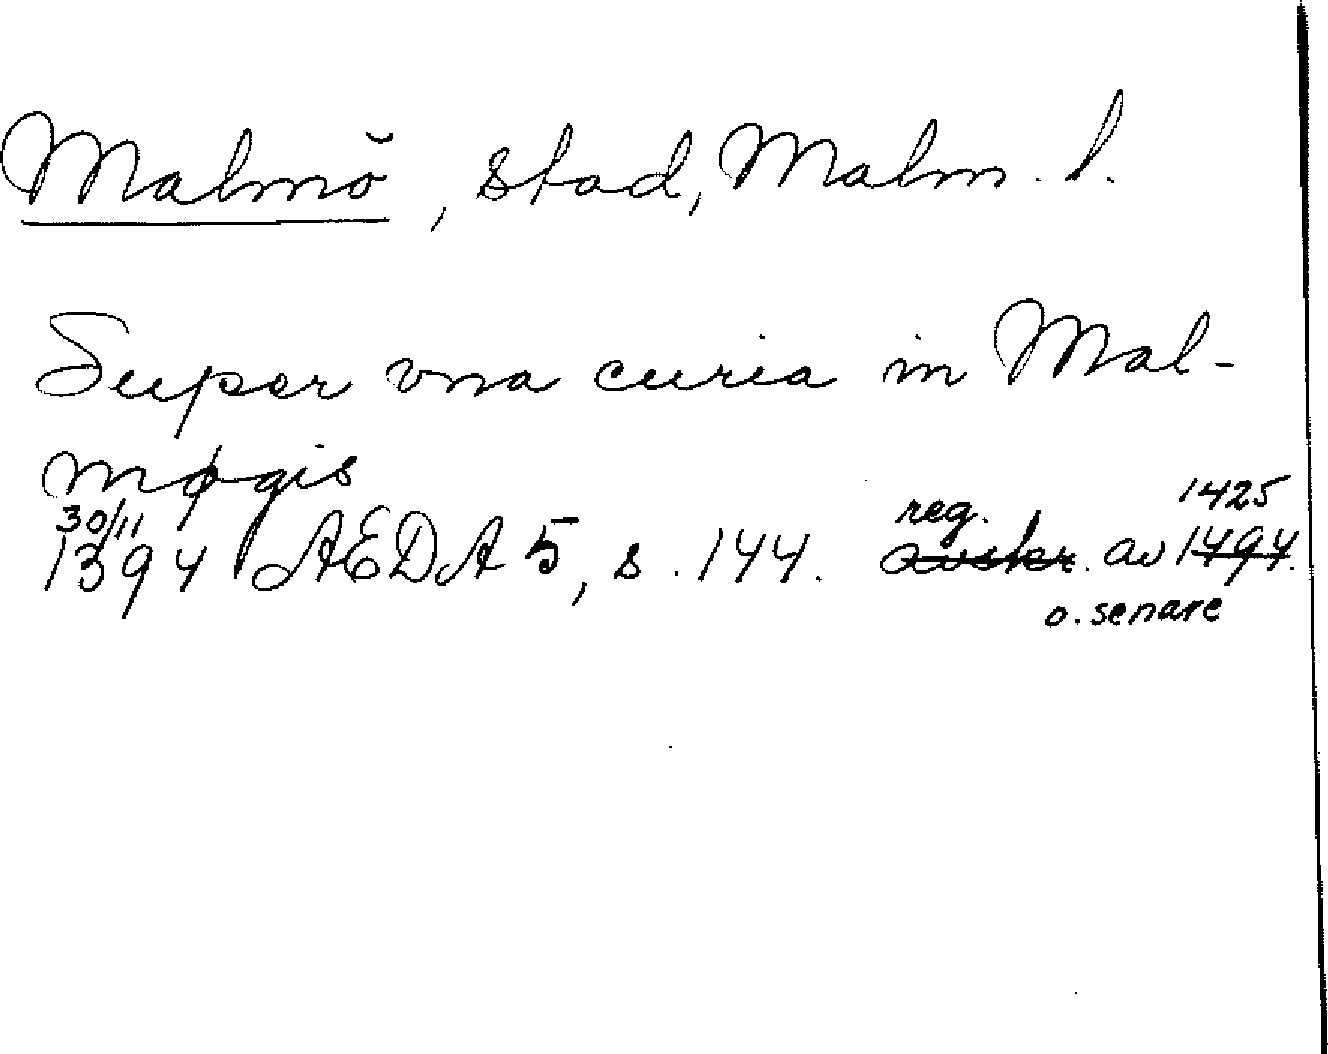 Malmö, stad, Malm. l.
Super vna curia in Mal-
møgis
30/11 reg. 1425
1394 AEDA 5, s. 144. avskr. av 1494.
o. senare